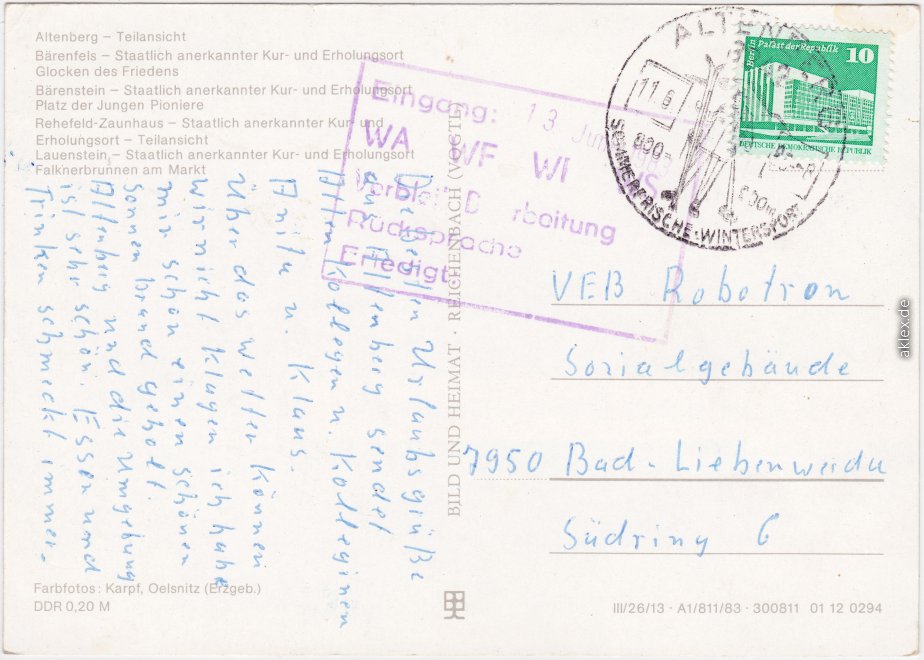 Altenberg – Teilansicht
Bärenfels – Staatlich anerkannter Kur- und Erholungsort
Glocken des Friedens
Bärenstein – Staatlich anerkannter Kur- und Erholungsort
Platz der Jungen Pioniere
Rehefeld-Zaunhaus – Staatlich anerkannter Kur- und
Erholungsort – Teilansicht
Lauenstein – Staatlich anerkannter Kur- und Erholungsort
Falknerbrunnen am Markt
Eingang: 13. Jun
WA WF WI
Rücksprache
Erledigt
ALTENBERG
11.6
800m
SOMMERFRISCHE · WINTERSPORT
Berlin Palast der Republik
10
DEUTSCHE DEMOKRATISCHE REPUBLIK
Die besten Urlaubsgrüße
aus Altenberg sendet
Allen Kollegen u. Kolleginen
Anita u. Klaus.
Über das Wetter können
wir nicht klagen ich habe
mir schon einen schönen
Sonnenbrand geholt.
Altenberg und die Umgebung
ist sehr schön. Essen und
Trinken schmeckt immer.
BILD UND HEIMAT · REICHENBACH (VOGTL)
VEB Robotron
Sozialgebäude
7950 Bad-Liebenwerda
Südring 6
Farbfotos: Karpf, Oelsnitz (Erzgeb.)
DDR 0,20 M
III/26/13 · A1/811/83 · 300811 01 12 0294
aklex.de